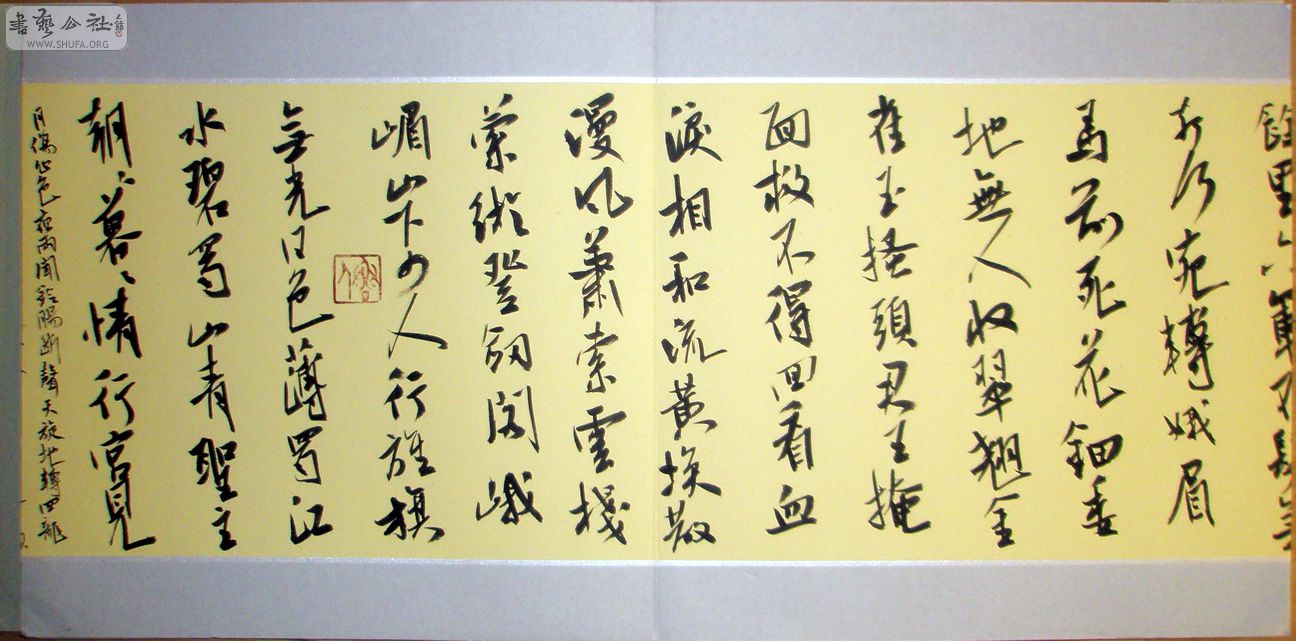 書藝公社
WWW.SHUFA.ORG
餘里六軍不發無
奈何宛轉娥眉
馬前死花鈿委
地無人收翠翹金
雀玉搔頭君王掩
面救不得回看血
淚相和流黃埃散
漫風蕭索雲棧
縈紆登劍閣峨
嵋山下少人行旌旗
無光日色薄蜀江
水碧蜀山青聖主
朝〻暮〻情行宮見
月傷心色夜雨聞鈴腸斷聲天旋地轉回龍